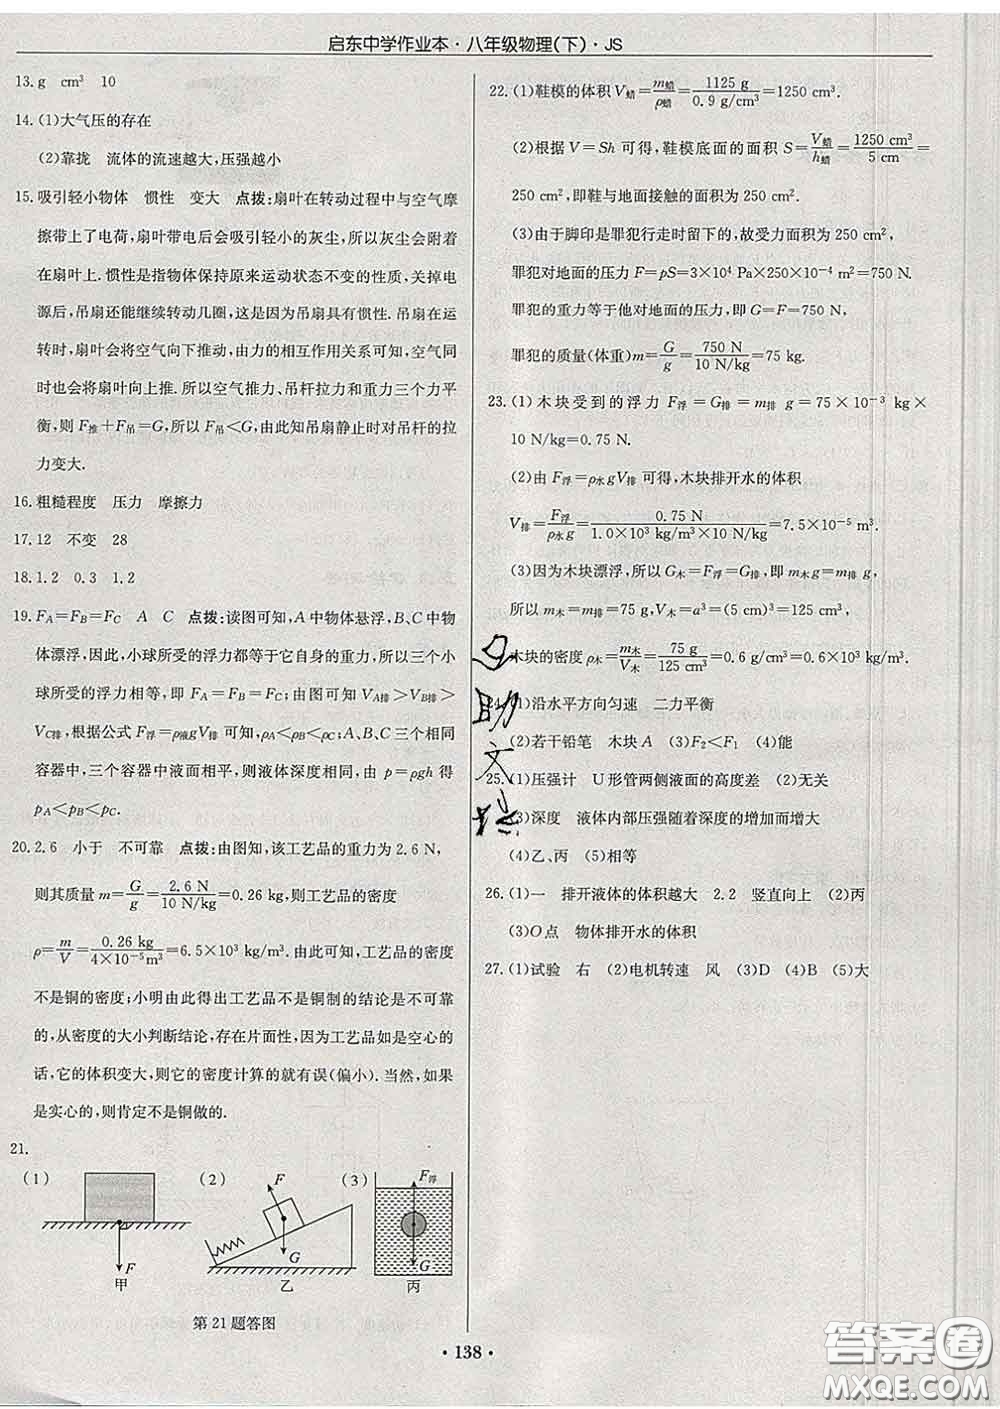 启东中学作业本·八年级物理(下)·JS
13. g　cm³　10
14. (1)大气压的存在
(2)靠拢　流体的流速越大,压强越小
15. 吸引轻小物体　惯性　变大　点拨:扇叶在转动过程中与空气摩
擦带上了电荷,扇叶带电后会吸引轻小的灰尘,所以灰尘会附着
在扇叶上. 惯性是指物体保持原来运动状态不变的性质,关掉电
源后,吊扇还能继续转动几圈,这是因为吊扇具有惯性. 吊扇在运
转时,扇叶会将空气向下推动,由力的相互作用关系可知,空气同
时也会将扇叶向上推. 所以空气推力、吊杆拉力和重力三个力平
衡,则 F推+F吊=G,所以 F吊<G,由此知吊扇静止时对吊杆的拉
力变大.
16. 粗糙程度　压力　摩擦力
17. 12　不变　28
18. 1.2　0.3　1.2
19. FA=FB=FC　A　C　点拨:读图可知,A 中物体悬浮,B、C 中物
体漂浮,因此,小球所受的浮力都等于它自身的重力,所以三个小
球所受的浮力相等,即 FA=FB=FC;由图可知 VA排>VB排>
VC排,根据公式 F浮=ρ液gV排 可知,ρA<ρB<ρC;A、B、C 三个相同
容器中,三个容器中液面相平,则液体深度相同,由 p=ρgh 得
pA<pB<pC.
20. 2.6　小于　不可靠　点拨:由图知,该工艺品的重力为 2.6 N,
则其质量 m=G/g=2.6 N/10 N/kg=0.26 kg,则工艺品的密度
ρ=m/V=0.26 kg/4×10⁻⁵m³=6.5×10³ kg/m³. 由此可知,工艺品的密度
不是铜的密度;小明由此得出工艺品不是铜制的结论是不可靠
的,从密度的大小判断结论,存在片面性,因为工艺品如是空心的
话,它的体积变大,则它的密度计算的就有误(偏小). 当然,如果
是实心的,则肯定不是铜做的.
21.
(1)　(2)　(3)
F　F　G　F浮　G
甲　乙　丙
第 21 题答图
22. (1)鞋模的体积 V蜡=m蜡/ρ蜡=1125 g/0.9 g/cm³=1250 cm³.
(2)根据 V=Sh 可得,鞋模底面的面积 S=V蜡/h蜡=1250 cm³/5 cm=
250 cm²,即鞋与地面接触的面积为 250 cm².
(3)由于脚印是罪犯行走时留下的,故受力面积为 250 cm²,
罪犯对地面的压力 F=pS=3×10⁴ Pa×250×10⁻⁴ m²=750 N.
罪犯的重力等于他对地面的压力,即 G=F=750 N,
罪犯的质量(体重)m=G/g=750 N/10 N/kg=75 kg.
23. (1)木块受到的浮力 F浮=G排=m排 g=75×10⁻³ kg×
10 N/kg=0.75 N.
(2)由 F浮=ρ水gV排 可得,木块排开水的体积
V排=F浮/ρ水g=0.75 N/1.0×10³ kg/m³×10 N/kg=7.5×10⁻⁵ m³.
(3)因为木块漂浮,所以 G木=F浮=G排,即 m木g=m排 g,
所以 m木=m排=75 g,V木=a³=(5 cm)³=125 cm³,
木块的密度 ρ木=m木/V木=75 g/125 cm³=0.6 g/cm³=0.6×10³ kg/m³.
(1)沿水平方向匀速　二力平衡
(2)若干铅笔　木块 A　(3)F2<F1　(4)能
25. (1)压强计　U 形管两侧液面的高度差　(2)无关
(3)深度　液体内部压强随着深度的增加而增大
(4)乙、丙　(5)相等
26. (1)一　排开液体的体积越大　2.2　竖直向上　(2)丙
(3)O 点　物体排开水的体积
27. (1)试验　右　(2)电机转速　风　(3)D　(4)B　(5)大
·138·
答案圈
MXQE.COM